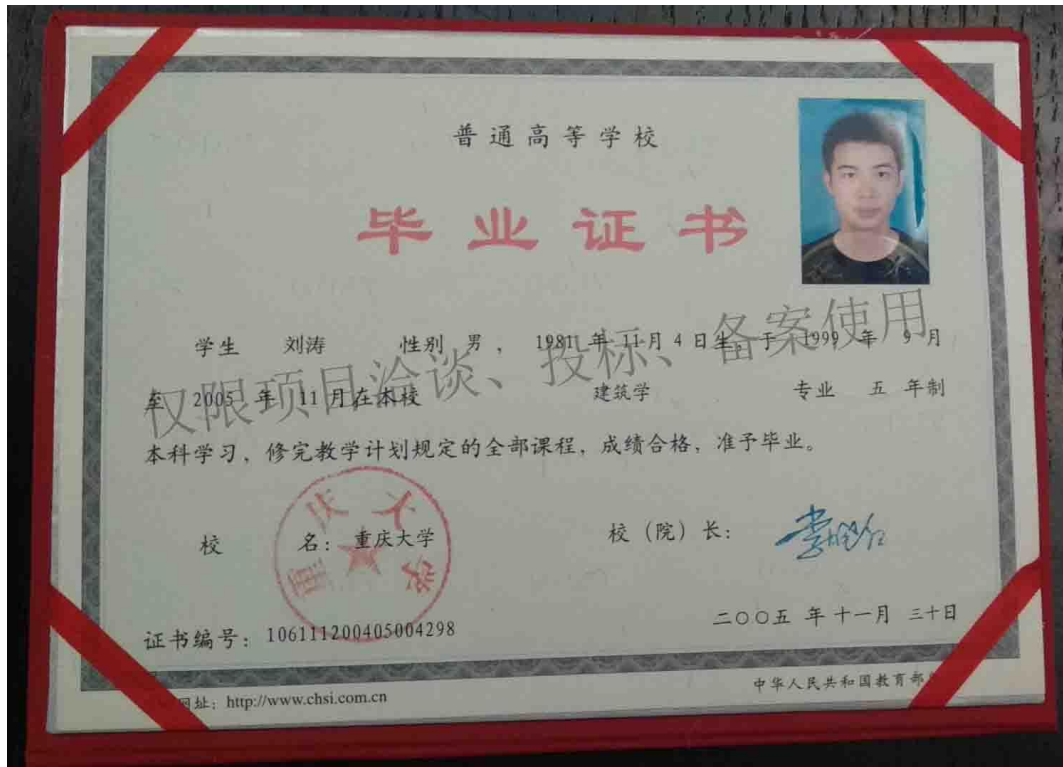 普通高等学校
毕业证书
学生 刘涛 性别 男， 1981 年 11 月 4 日生，于 1999 年 9 月
至 2005 年 11 月在本校 建筑学 专业 五 年制
本科学习，修完教学计划规定的全部课程，成绩合格，准予毕业。
仅限项目洽谈、投标、备案使用
校 名：重庆大学 校（院）长：
重庆大学
二〇〇五 年 十一月 三十日
证书编号：106111200405004298
网址：http://www.chsi.com.cn
中华人民共和国教育部